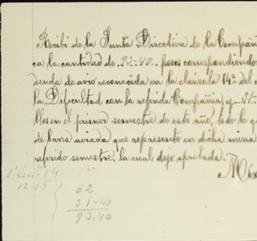 Recibí de la Junta Directiva de la Compañ
ca la cantidad de pesos correspondiendo
deuda de avío reconocida en la cláusula 14ª del
la Dificultad con la referida Compañía y
bles en el primer semestre de este año, todo lo
de barra aviada que represento en dicha mina
referido semestre, la cual dejo aprobada.
Méx
62
31-40
93.40